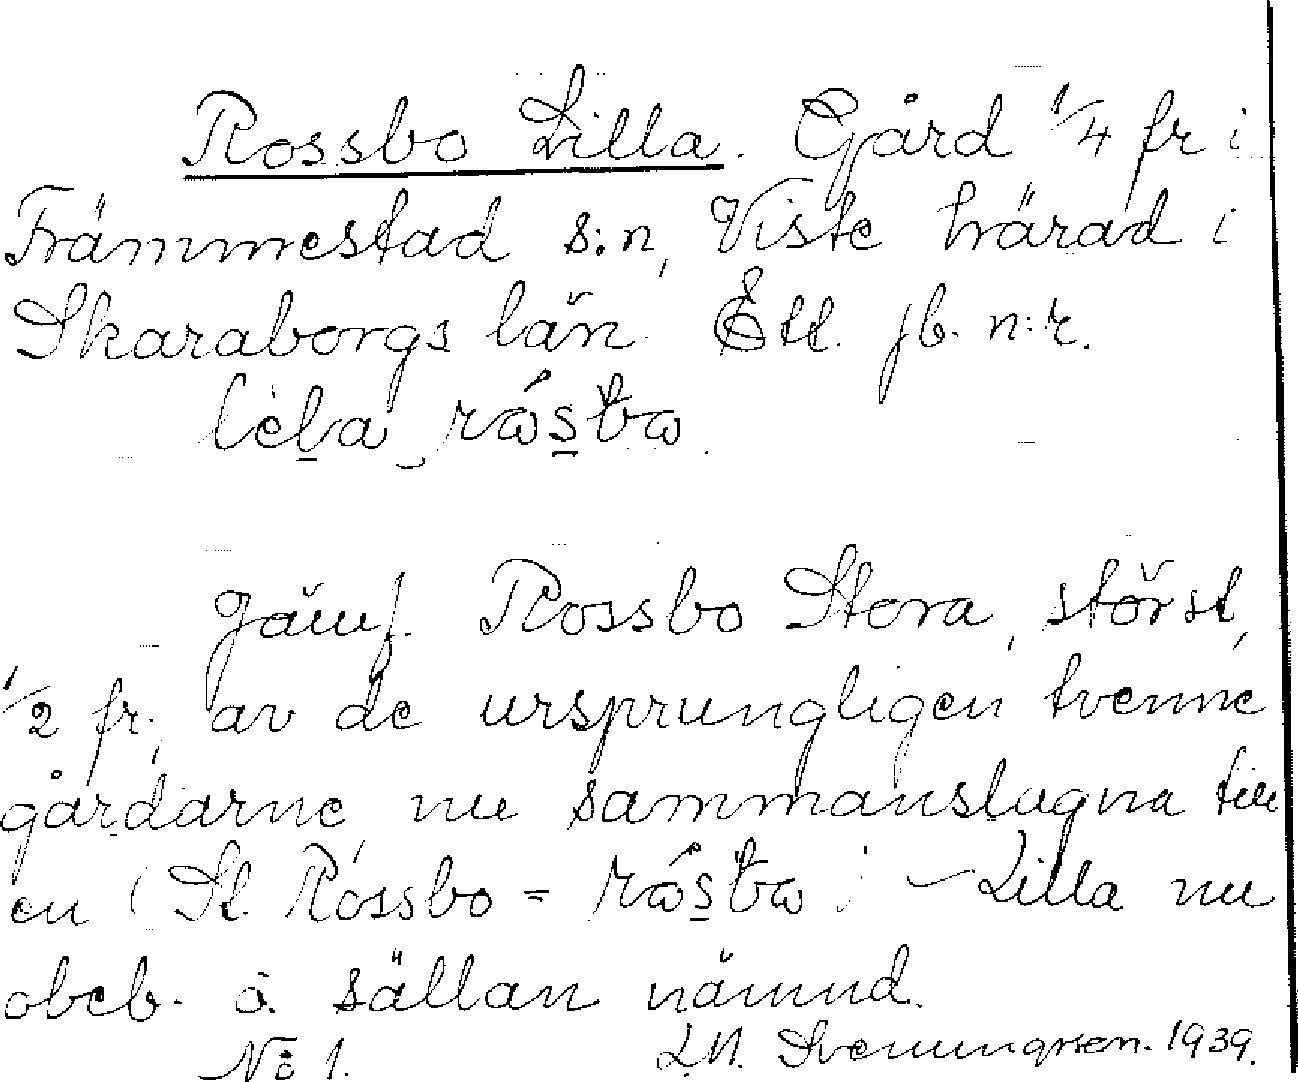 Rossbo Lilla. Gård 1/4 fr i
Främmestad s:n, Viste härad i
Skaraborgs län. Ett jb. n:r.
Jämf. Rossbo Stora, störst,
1/2 fr., av de ursprungligen tvenne
gårdarne, nu sammanslagna till
en (St. Rossbo = ~ Lilla nu
obeb. o. sällan nämnd.
No 1. Svenungsson. 1939.